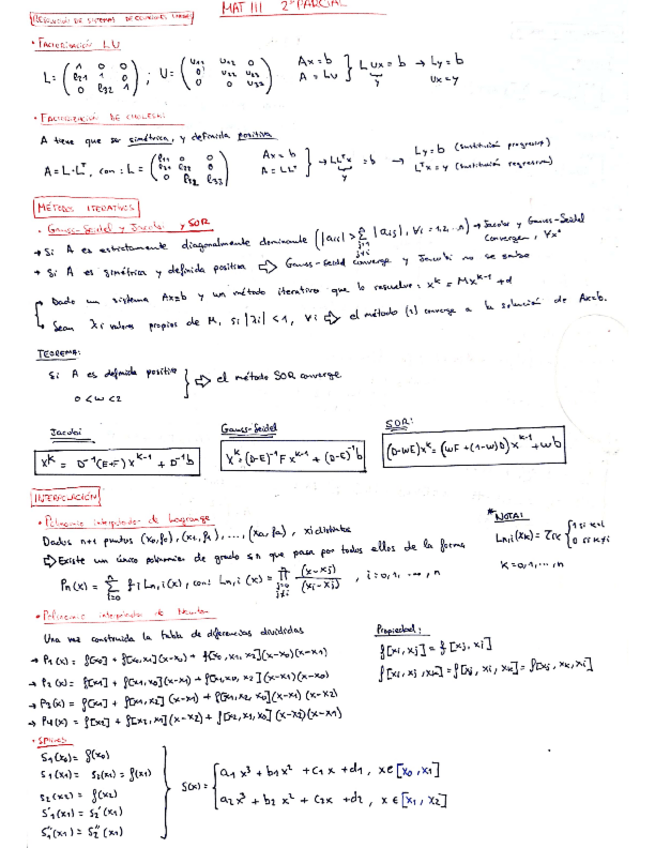 MAT III 2º PARCIAL
RESOLUCIÓN DE SISTEMAS DE ECUACIONES LINEALES
• FACTORIZACIÓN LU
L = (1 0 0; l21 1 0; 0 l32 1) ; U = (u11 u12 0; 0 u22 u23; 0 0 u33) Ax=b A=LU } LUx=b → Ly=b Ux=y
y
• FACTORIZACIÓN DE CHOLESKI
A tiene que ser simétrica, y definida positiva
A=L·Lᵀ, con: L = (l11 0 0; l21 l22 0; 0 l32 l33) Ax=b A=LLᵀ } → LLᵀx=b → Ly=b (sustitución progresiva) Lᵀx=y (sustitución regresiva)
y
MÉTODOS ITERATIVOS
• Gauss-Seidel y Jacobi y SOR
→ Si A es estrictamente diagonalmente dominante (|aii| > Σ j=1 j≠i n |aij|, ∀i=1,2..n) → Jacobi y Gauss-Seidel convergen, ∀x⁰
→ Si A es simétrica y definida positiva ⇒ Gauss-Seidel converge y Jacobi no se sabe
Dado un sistema Ax=b y un método iterativo que lo resuelve: xᵏ = Mxᵏ⁻¹ + d
Sean λi valores propios de M, si |λi| < 1, ∀i ⇒ el método (1) converge a la solución de Ax=b.
TEOREMA:
Si A es definida positiva
0 < w < 2
} ⇒ el método SOR converge
Jacobi
xᵏ = D⁻¹(E+F)xᵏ⁻¹ + D⁻¹b
Gauss-Seidel
xᵏ = (D-E)⁻¹Fxᵏ⁻¹ + (D-E)⁻¹b
SOR:
(D-wE)xᵏ = (wF+(1-w)D)xᵏ⁻¹ + wb
INTERPOLACIÓN
• Polinomio interpolador de Lagrange
Dados n+1 puntos (x0,f0), (x1,f1), ..., (xn,fn), xi distintos
⇒ Existe un único polinomio de grado ≤n que pasa por todos ellos de la forma
Pn(x) = Σ i=0 n fi Ln,i(x), con: Ln,i(x) = Π j=0 j≠i n (x-xj)/(xi-xj), i=0,1,...,n
* NOTA:
Ln,i(xk) = δik {1 si k=i 0 si k≠i
k=0,1,...,n
• Polinomio interpolador de Newton
Una vez construida la tabla de diferencias divididas
→ P1(x) = f[x0] + f[x0,x1](x-x0) + f[x0,x1,x2](x-x0)(x-x1)
→ P2(x) = f[x1] + f[x1,x0](x-x1) + f[x1,x0,x2](x-x1)(x-x0)
→ P3(x) = f[x1] + f[x1,x2](x-x1) + f[x1,x2,x0](x-x1)(x-x2)
→ P4(x) = f[x2] + f[x2,x1](x-x2) + f[x2,x1,x0](x-x2)(x-x1)
Propiedad:
f[xi,xj] = f[xj,xi]
f[xi,xj,xk] = f[xj,xi,xk] = f[xj,xk,xi]
• SPLINES
S1(x0) = f(x0)
S1(x1) = S2(x1) = f(x1)
S2(x2) = f(x2)
S'1(x1) = S2'(x1)
S''1(x1) = S2''(x1)
S(x) = { a1x³ + b1x² + c1x + d1, x∈[x0,x1]
a2x³ + b2x² + c2x + d2, x∈[x1,x2]